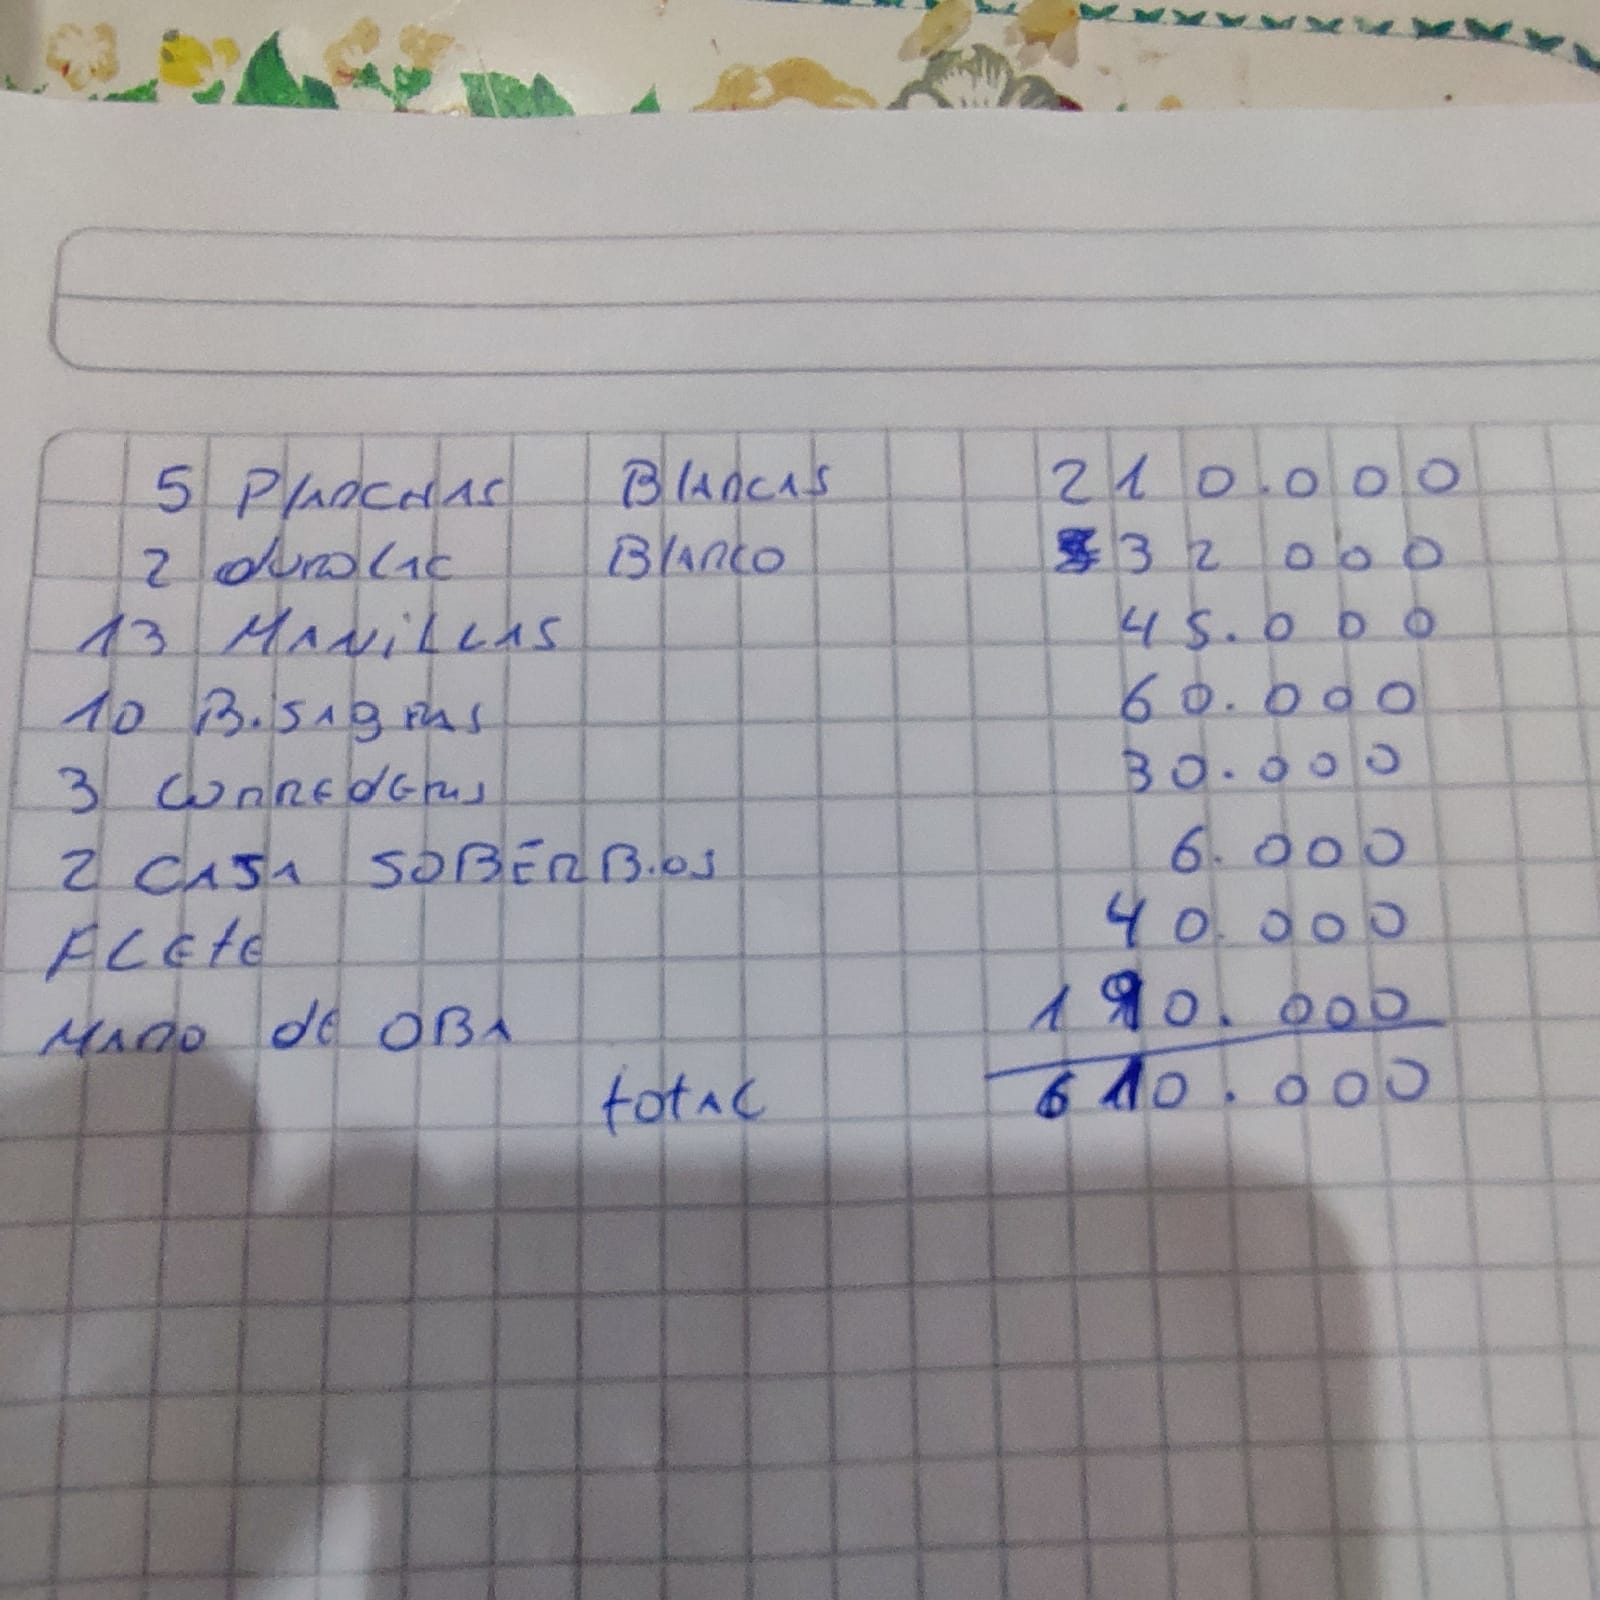 5 Planchas Blancas 210.000
2 durolac Blanco 32 000
13 Manillas 45.000
10 Bisagras 60.000
3 correderas 30.000
2 CASA SOBERBIOS 6.000
FLete 40.000
Mano de OBA 190.000
total 610.000